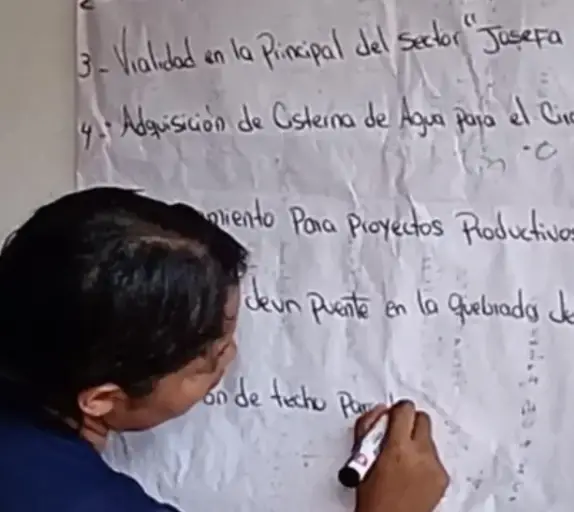 3- Vialidad en la Principal del sector "Josefa
4.- Adquisición de Cisterna de Agua para el Circ
miento Para Proyectos Productivos
deun puente en la quebrada de
ón de techo Para